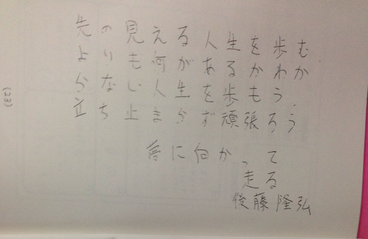 先の見える人生を歩むか
よりも何があるかわか
らない人生を歩もう
立ち止まらず頑張ろう
に向かって
走る
後藤隆弘